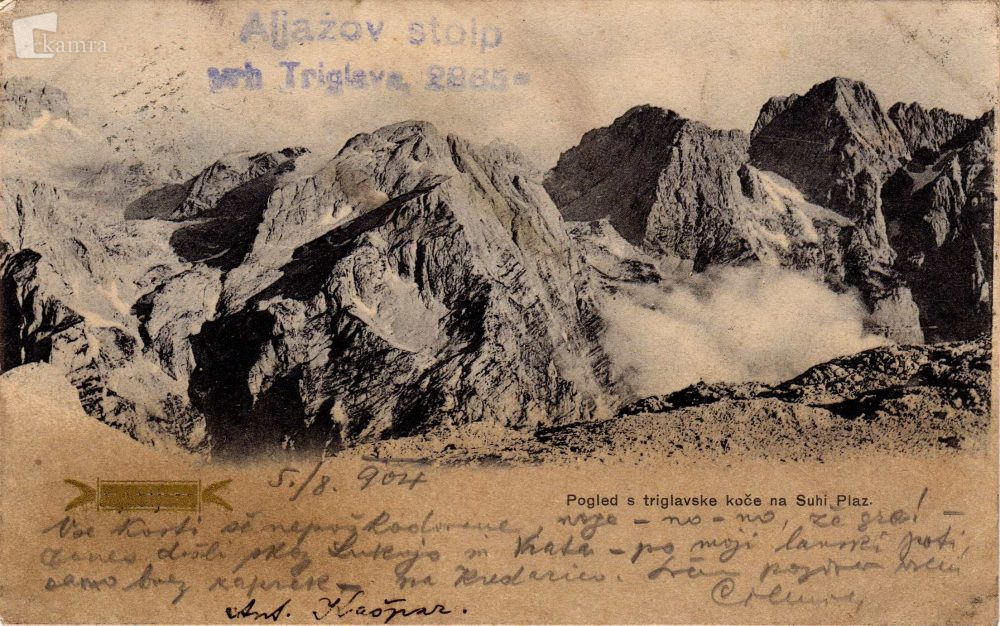 kamra
Aljažov stolp
vrh Triglava, 2865
5./8. 904
Pogled s triglavske koče na Suhi Plaz.
Vse kosti še nepoškodovane, noge - no - no, že gre! -
Danes došli skoz Luknjo in Vrata - po moji lanski poti,
samo brez zaprek - na Kredarico. pozdrav vsem
Ant. Kašpar.